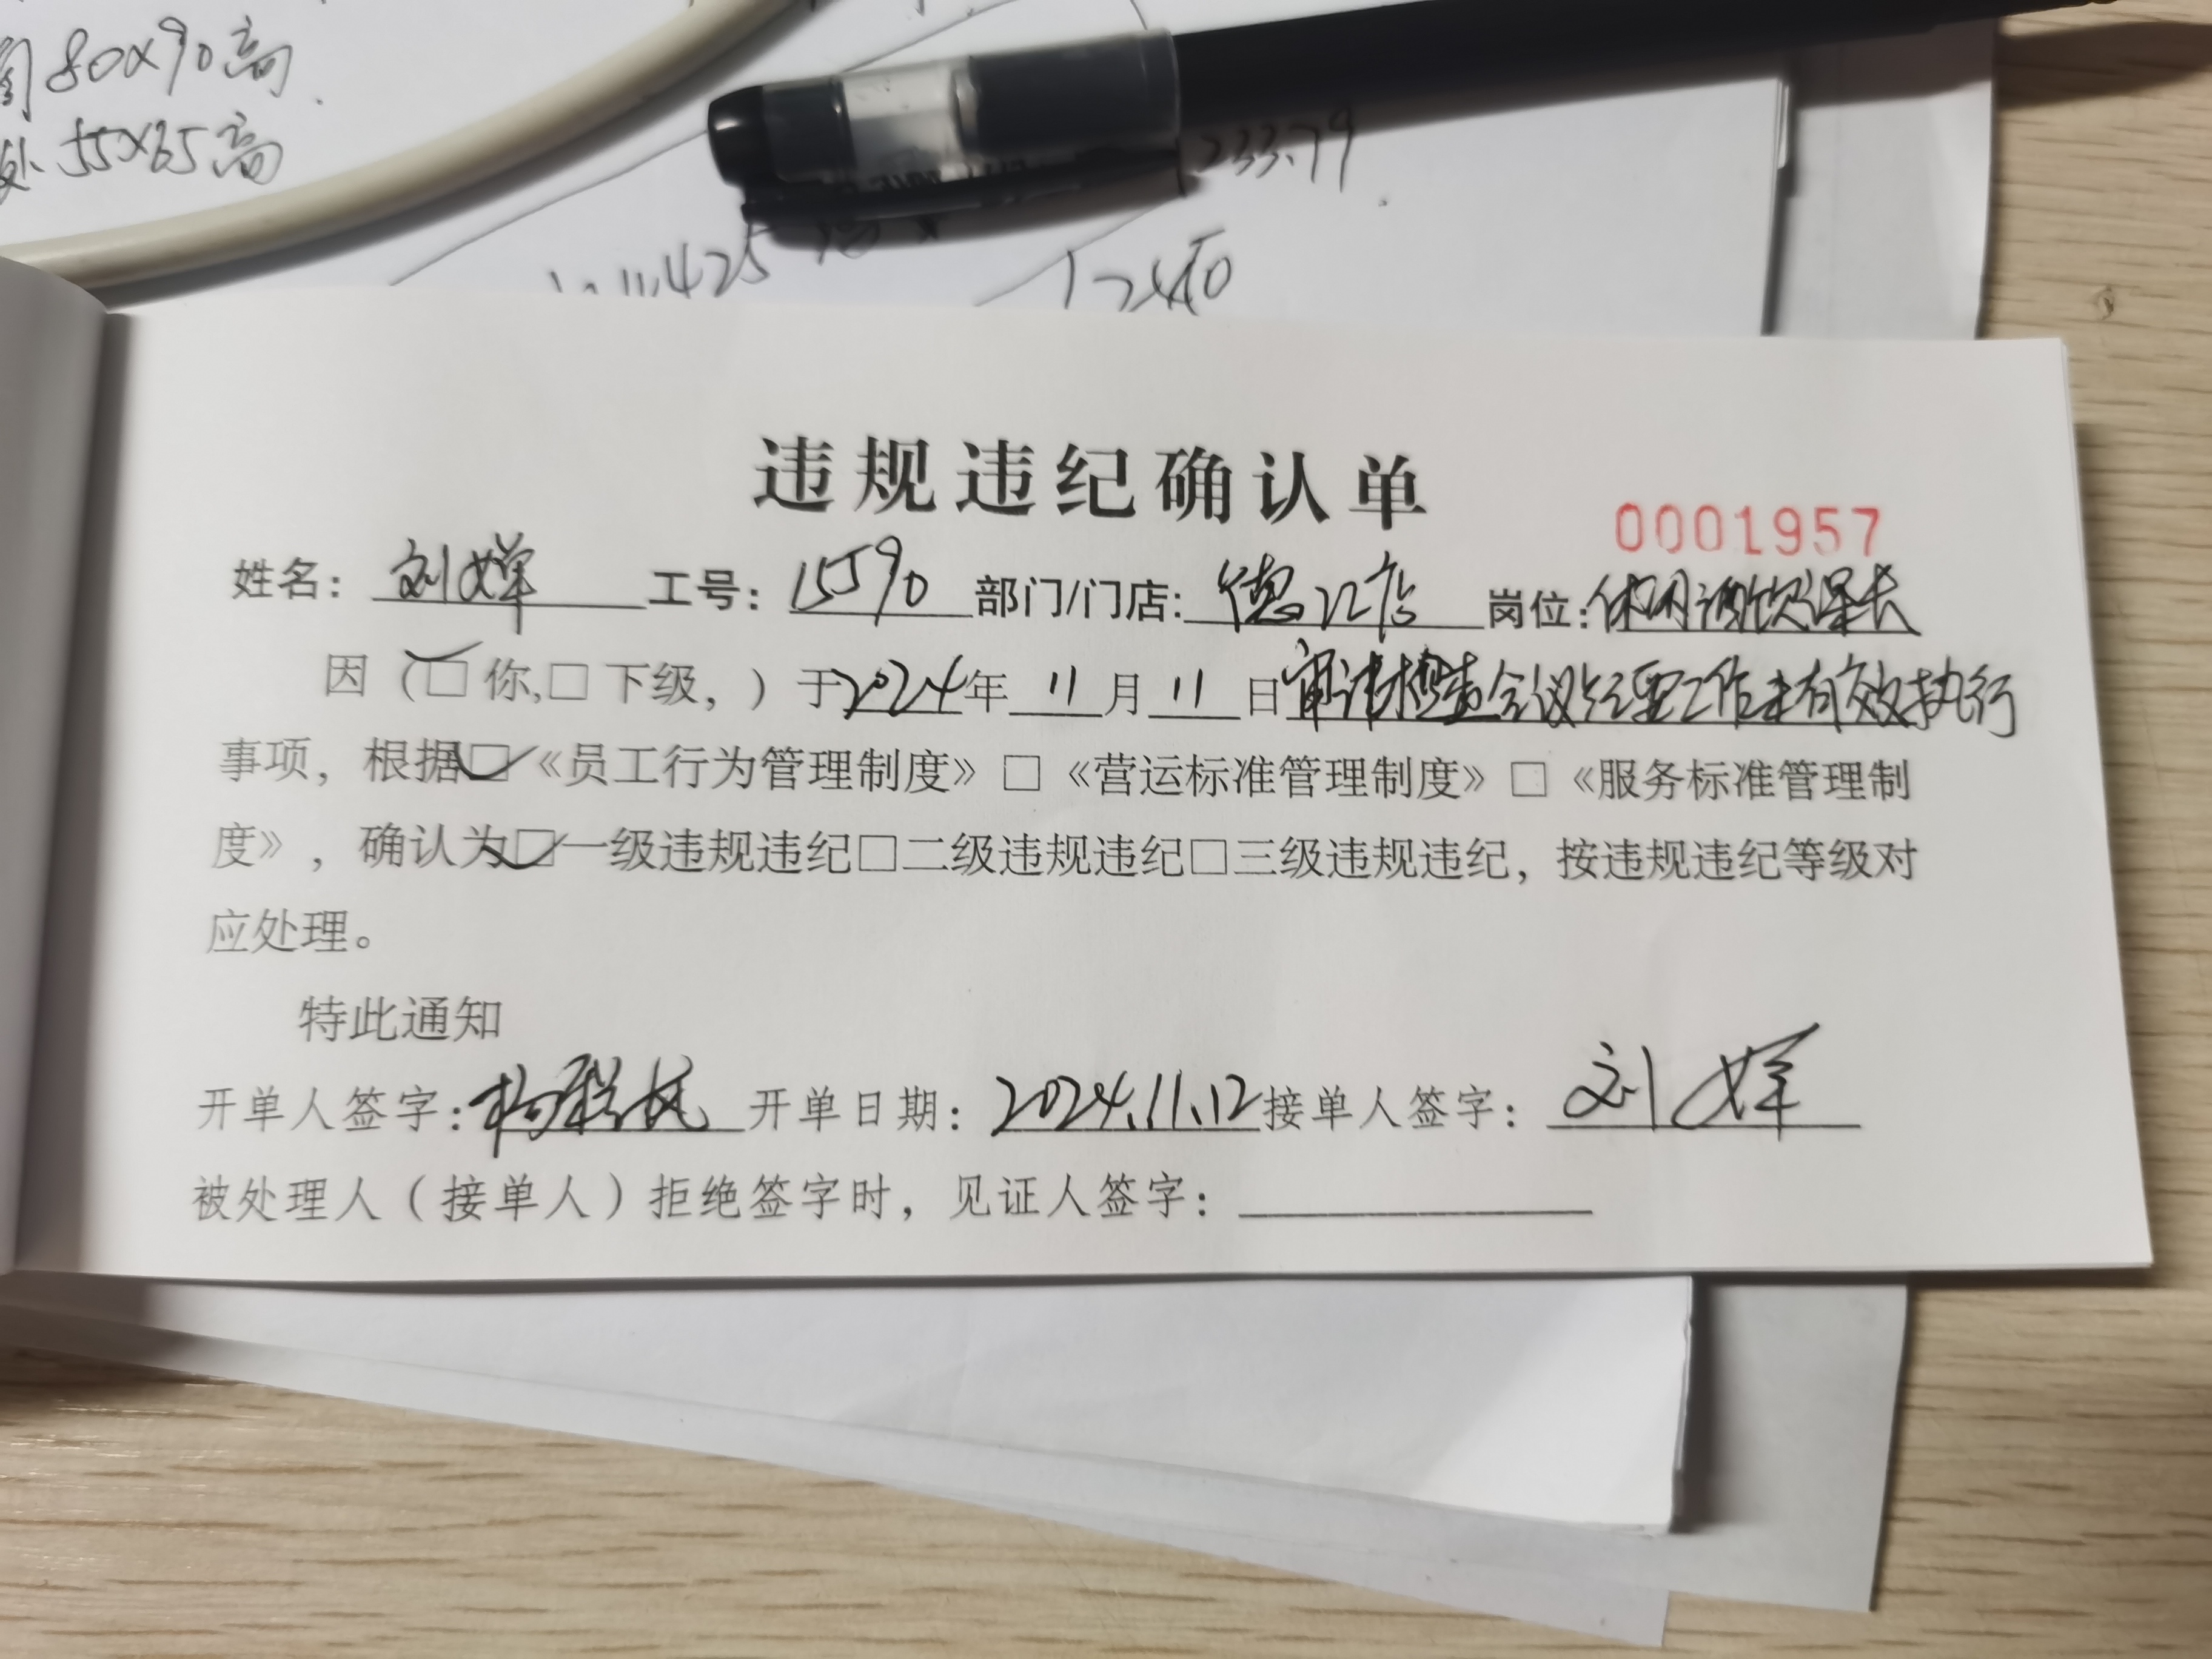 80X90高
处55X65高
233.79
425
违规违纪确认单
0001957
姓名：刘婵 工号：15590 部门/门店：德江店 岗位：休闲调饮课长
因（☑你,□下级，）于2024年11月11日审计检查会议纪要工作未有效执行
事项，根据☑《员工行为管理制度》□《营运标准管理制度》□《服务标准管理制
度》，确认为☑一级违规违纪□二级违规违纪□三级违规违纪，按违规违纪等级对
应处理。
特此通知
开单人签字：杨 开单日期：2024.11.12 接单人签字：刘婵
被处理人（接单人）拒绝签字时，见证人签字：